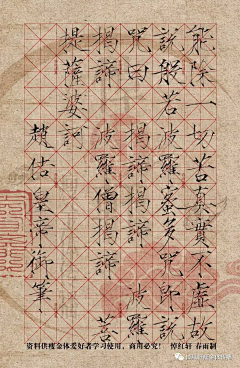 能除一切苦真實不虛故
說般若波羅蜜多咒即說
咒曰 揭諦揭諦 波羅
揭諦 波羅僧揭諦 菩
提薩婆訶
趙佶皇帝御筆
资料供瘦金体爱好者学习使用，商用必究！ 悼红轩 春雨制